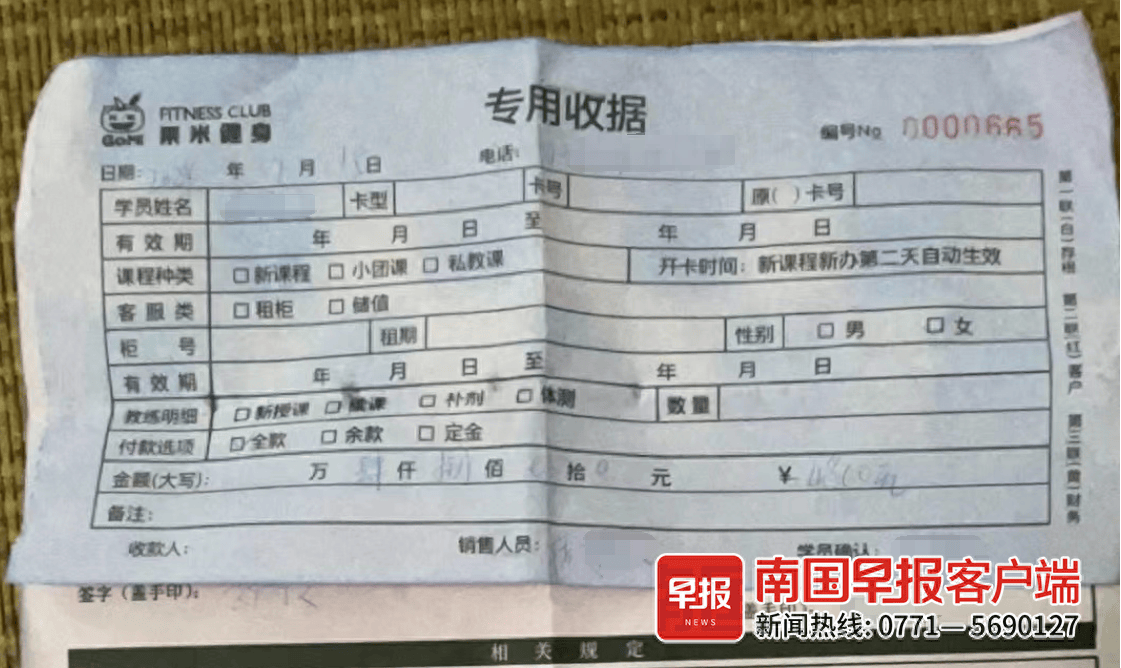 FITNESS CLUB
GOMI 果米健身
专用收据
编号No 0000665
日期： 年 月 日 电话：
学员姓名 卡型 卡号 原( )卡号
有效期 年 月 日 至 年 月 日
课程种类 □新课程 □小团课 □私教课 开卡时间：新课程新办第二天自动生效
客服类 □租柜 □储值
柜号 租期 性别 □男 □女
有效期 年 月 日 至 年 月 日
教练明细 □新授课 □续课 □补剂 □体测 数量
付款选项 □全款 □余款 □定金
金额(大写)： 万 肆仟 捌佰 拾 元 ￥
备注：
收款人： 销售人员： 学员确认：
第一联(白)存根 第二联(红)客户 第三联(黄)财务
签字（盖手印）： 盖手印）：
相关规定
早报
NEWS
南国早报客户端
新闻热线：0771—5690127